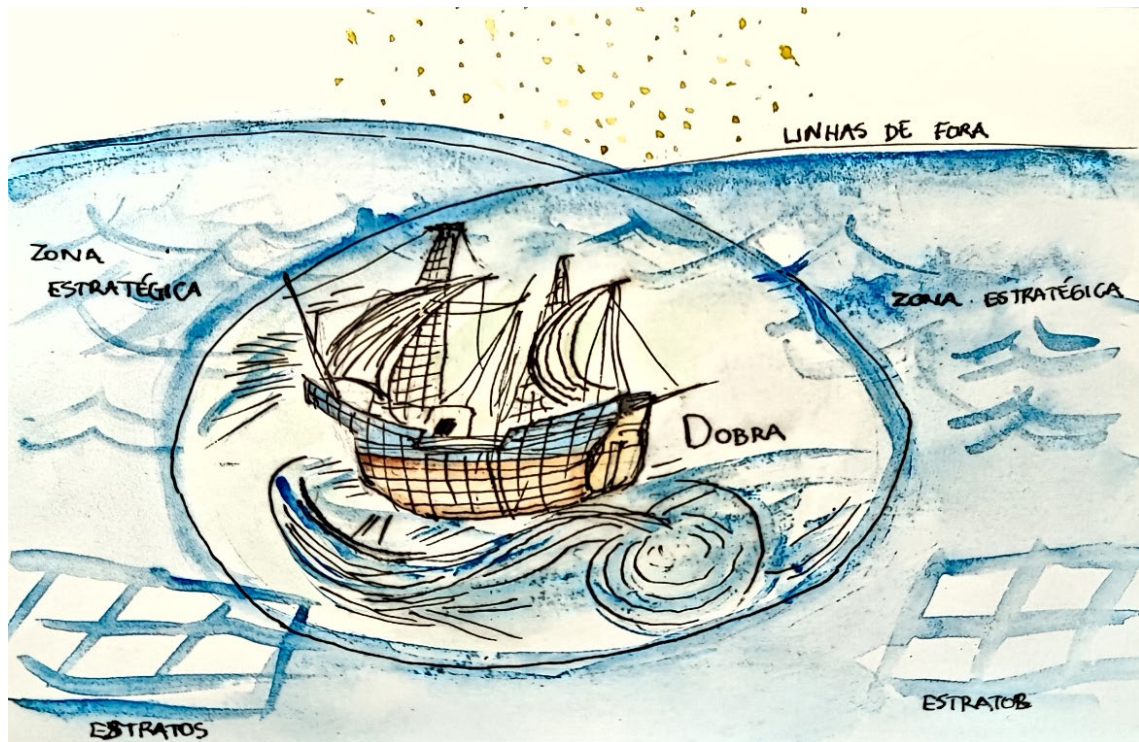 LINHAS DE FORA
ZONA
ESTRATÉGICA
ZONA ESTRATÉGICA
DOBRA
ESTRATOS
ESTRATOS